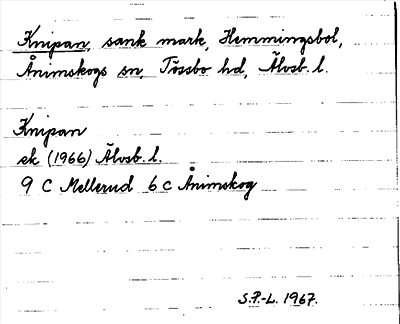 Knipan, sank mark, Hemmingsbol,
Ånimskogs sn, Tössbo hd, Älvsb. l.
Knipan
ek (1966) Älvsb. l.
9 C Mellerud 6 c Ånimskog
S.P.-L. 1967.